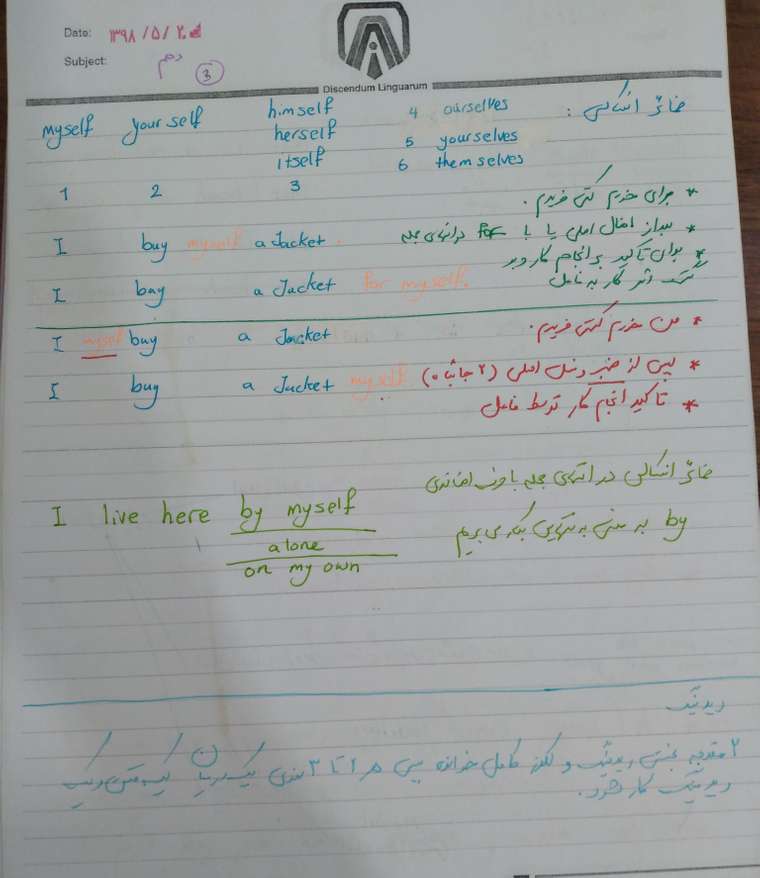 Date: ۱۳۹۸/۵/۲۰
Subject: دهم ③
Discendum Linguarum
ضمائر انعکاسی :
myself yourself himself 4 ourselves
herself 5 yourselves
itself 6 themselves
1 2 3
* برای خودم کتی خریدم.
I buy myself a Jacket. * بعد از افعال اصلی یا با for در انتهای جمله
* برای تاکید بر انجام کار و
I buy a Jacket for myself. اثر کار به فاعل
I myself buy a Jacket * من خودم کتی خریدم.
I buy a Jacket myself * پس از ضمیر و فعل اصلی (۲ جا)
* تاکید انجام کار توسط فاعل
ضمائر انعکاسی در انتهای جمله با حرف اضافه‌ی
I live here by myself
by به معنی به تنهایی بکار می‌بریم
alone
on my own
۲ و کامل خوانده سپس ۱ تا ۳
کار شود.